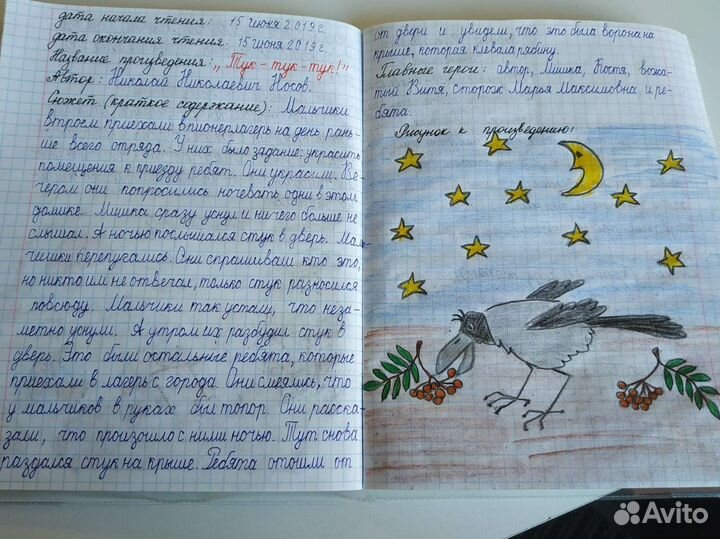 дата начала чтения: 15 июня 2019 г.
дата окончания чтения: 15 июня 2019 г.
Название произведения: „Тук-тук-тук!"
Автор: Николай Николаевич Носов.
Сюжет (краткое содержание): Мальчики
втроем приехали в пионерлагерь на день рань-
ше всего отряда. У них было задание: украсить
помещения к приезду ребят. Они украсили. Ве-
чером они попросились ночевать одни в этом
домике. Мишка сразу уснул и ничего больше не
слышал. А ночью послышался стук в дверь. Маль-
чишки перепугались. Они спрашивали кто это,
но никто им не отвечал, только стук разносился
повсюду. Мальчики так устали, что неза-
метно уснули. А утром их разбудил стук в
дверь. Это были остальные ребята, которые
приехали в лагерь с города. Они смеялись, что
у мальчиков в руках был топор. Они расска-
зали, что произошло с ними ночью. Тут снова
раздался стук на крыше. Ребята отошли от
от двери и увидели, что это была ворона на
крыше, которая клевала рябину.
Главные герои: автор, Мишка, Костя, вожа-
тый Витя, сторож Марья Максимовна и ре-
бята.
Рисунок к произведению:
Avito